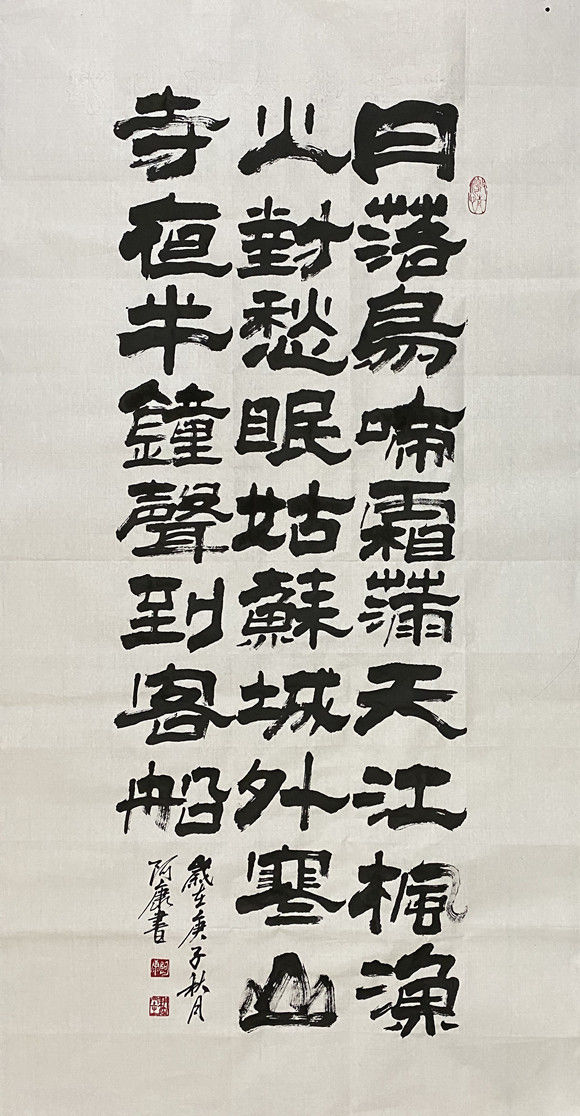 日落烏啼霜滿天江楓漁
火對愁眠姑蘇城外寒山
寺夜半鐘聲到客船
歲在庚子秋月
阿康書